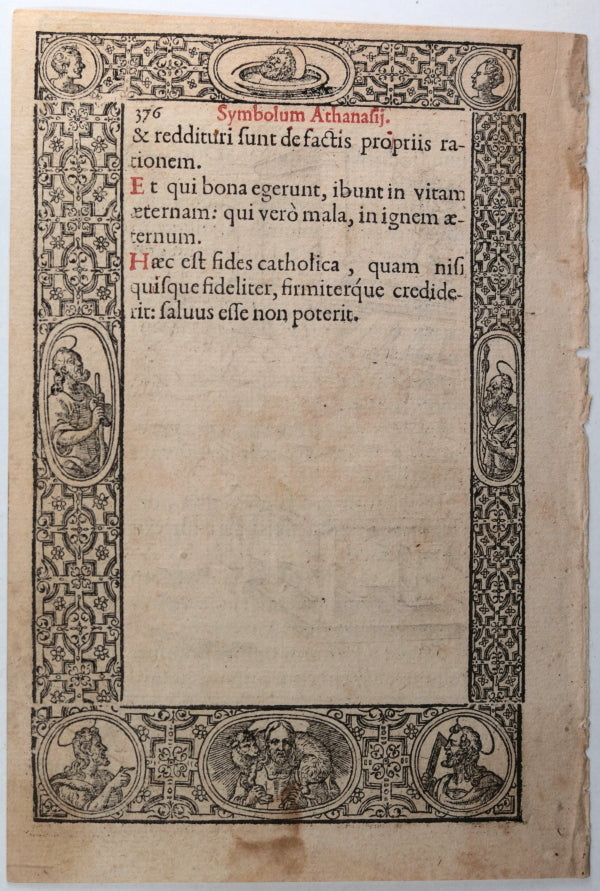 376 Symbolum Athanasij.
& reddituri sunt de factis propriis ra-
tionem.
Et qui bona egerunt, ibunt in vitam
æternam: qui verò mala, in ignem æ-
ternum.
Hæc est fides catholica, quam nisi
quisque fideliter, firmiterq́ue credide-
rit: saluus esse non poterit.